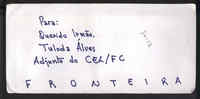 Para:
Querido Irmão,
Tuloda Álves
Adjunto do CEL/FC
FRONTEIRA